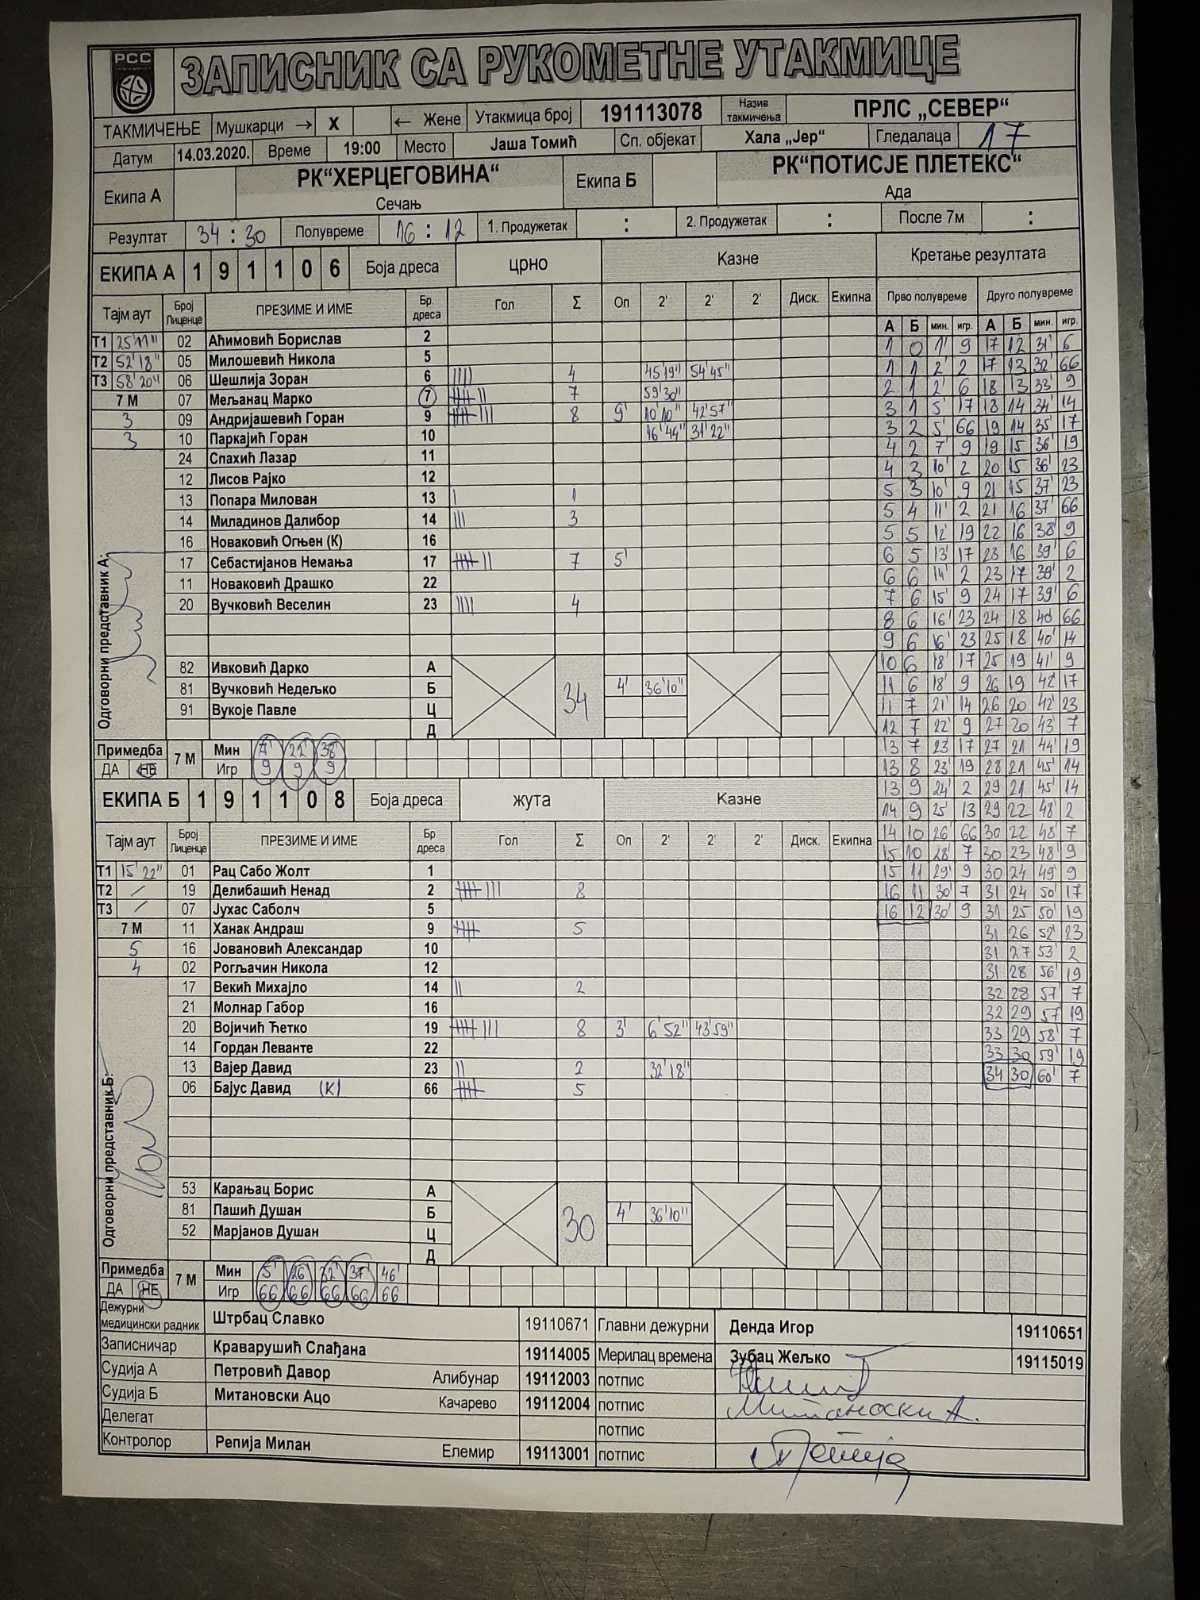 РСС
ЗАПИСНИК СА РУКОМЕТНЕ УТАКМИЦЕ
ТАКМИЧЕЊЕ Мушкарци → X ← Жене Утакмица број 191113078 Назив такмичења ПРЛС „СЕВЕР“
Датум 14.03.2020. Време 19:00 Место Јаша Томић Сп. објекат Хала „Јер“ Гледалаца 17
Екипа А РК“ХЕРЦЕГОВИНА“ Сечањ Екипа Б РК“ПОТИСЈЕ ПЛЕТЕКС“ Ада
Резултат 34 : 30 Полувреме 16 : 12 1. Продужетак : 2. Продужетак : После 7м :
ЕКИПА А 1 9 1 1 0 6 Боја дреса црно Казне Кретање резултата
Тајм аут Број Лиценце ПРЕЗИМЕ И ИМЕ Бр дреса Гол Σ Оп 2' 2' 2' Диск. Екипна Прво полувреме Друго полувреме
А Б мин. игр. А Б мин. игр.
Т1 25'11" 02 Аћимовић Борислав 2
Т2 52'18" 05 Милошевић Никола 5
Т3 58'20" 06 Шешлија Зоран 6 |||| 4 45'19" 54'45"
7 М 07 Мељанац Марко 7 7 59'30"
3 09 Андријашевић Горан 9 8 9' 10'10" 42'57"
3 10 Паркајић Горан 10 16'44" 31'22"
24 Спахић Лазар 11
12 Лисов Рајко 12
13 Попара Милован 13 | 1
14 Миладинов Далибор 14 ||| 3
16 Новаковић Огњен (К) 16
17 Себастијанов Немања 17 7 5'
11 Новаковић Драшко 22
20 Вучковић Веселин 23 |||| 4
Одговорни представник А:
82 Ивковић Дарко А
81 Вучковић Недељко Б 34 4' 36'10"
91 Вукоје Павле Ц
Д
Примедба ДА НЕ 7 М Мин 7' 22' 38'
Игр 9 9 9
ЕКИПА Б 1 9 1 1 0 8 Боја дреса жута Казне
Тајм аут Број Лиценце ПРЕЗИМЕ И ИМЕ Бр дреса Гол Σ Оп 2' 2' 2' Диск. Екипна
Т1 15'22" 01 Рац Сабо Жолт 1
Т2 / 19 Делибашић Ненад 2 8
Т3 / 07 Јухас Саболч 5
7 М 11 Ханак Андраш 9 5
5 16 Јовановић Александар 10
4 02 Рогљачин Никола 12
17 Векић Михајло 14 || 2
21 Молнар Габор 16
20 Војичић Ћетко 19 8 3' 6'52" 43'59"
14 Гордан Леванте 22
13 Вајер Давид 23 || 2 32'18"
06 Бајус Давид (К) 66 5
Одговорни представник Б:
53 Карањац Борис А
81 Пашић Душан Б 30 4' 36'10"
52 Марјанов Душан Ц
Д
Примедба ДА НЕ 7 М Мин 5' 26 32' 37' 46'
Игр 66 66 66 66 66
1 0 1' 9 17 12 31' 6
1 1 2' 2 17 13 32' 66
2 1 2' 6 18 13 33' 9
3 1 5' 17 18 14 34' 14
3 2 5' 66 19 14 35' 17
4 2 7' 9 19 15 36' 19
4 3 10' 2 20 15 36' 23
5 3 10' 9 21 15 37' 23
5 4 11' 2 21 16 37' 66
5 5 12' 19 22 16 38' 9
6 5 13' 17 23 16 39' 6
6 6 14' 2 23 17 39' 2
7 6 15' 9 24 17 39' 6
8 6 16' 23 24 18 40' 66
9 6 16' 23 25 18 40' 14
10 6 18' 17 25 19 41' 9
11 6 18' 9 26 19 42' 17
11 7 21' 14 26 20 42' 23
12 7 22' 9 27 20 43' 7
13 7 23 17 27 21 44' 19
13 8 23' 19 28 21 45' 14
13 9 24' 2 29 21 45' 14
14 9 25 13 29 22 48' 2
14 10 26' 66 30 22 48' 7
15 10 28' 7 30 23 48' 9
15 11 29' 9 30 24 49' 9
16 11 30' 7 31 24 50' 17
16 12 30' 9 31 25 50' 19
31 26 52' 23
31 27 53' 2
31 28 56' 19
32 28 57' 7
32 29 57 19
33 29 58' 7
33 30 59' 19
34 30 60' 7
Дежурни медицински радник Штрбац Славко 19110671 Главни дежурни Денда Игор 19110651
Записничар Краварушић Слађана 19114005 Мерилац времена Зубац Жељко 19115019
Судија А Петровић Давор Алибунар 19112003 потпис
Судија Б Митановски Ацо Качарево 19112004 потпис Митаноски А.
Делегат потпис
Контролор Репија Милан Елемир 19113001 потпис Репија